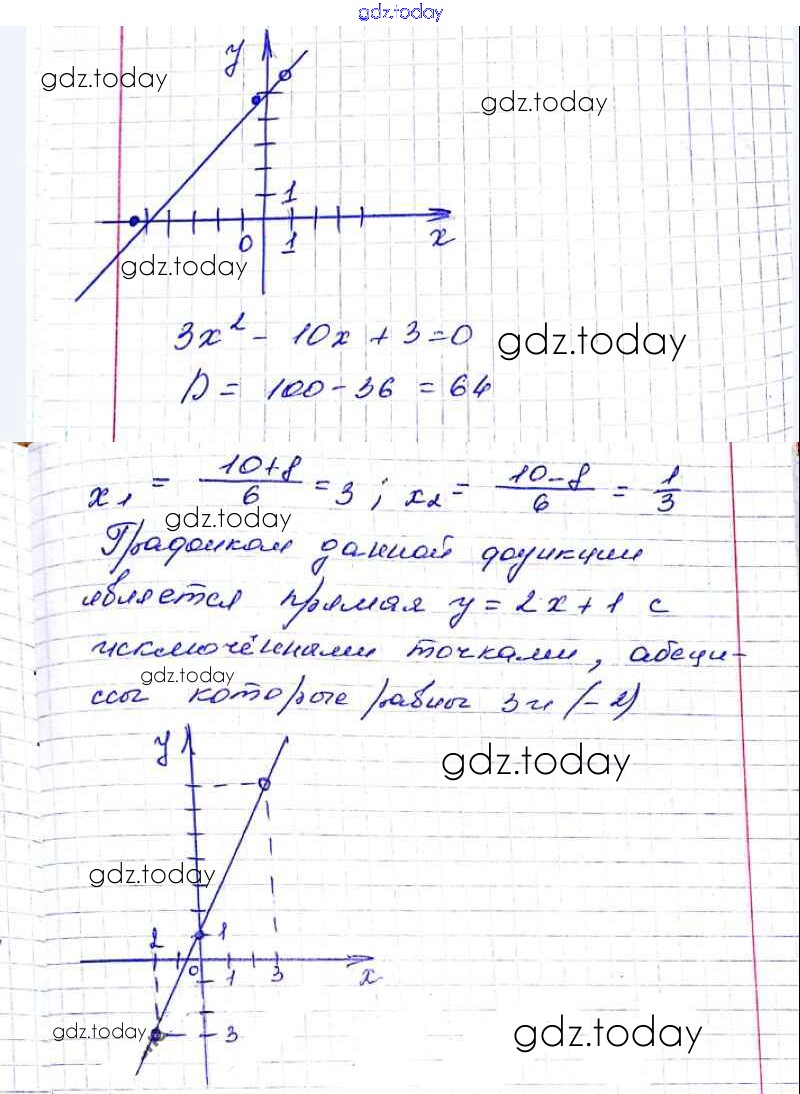 gdz.today
y
gdz.today
gdz.today
1
0 1 x
gdz.today
3x² - 10x + 3 = 0
gdz.today
D = 100 - 36 = 64
x₁ = (10+8)/6 = 3 ; x₂ = (10-8)/6 = 1/3
gdz.today
Графиком данной функции
является прямая y = 2x + 1 с
исключёнными точками, абсци-
gdz.today
ссы которые равны 3 и (-2)
y
gdz.today
gdz.today
2 1
0 1 3 x
gdz.today
3
gdz.today